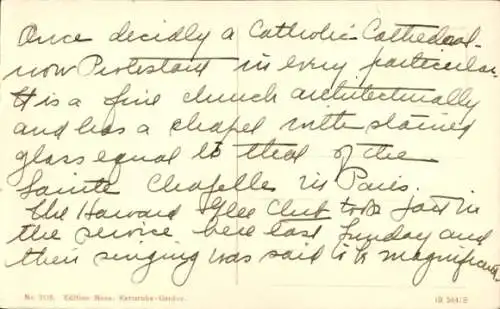 Once decidly a Catholic Cathedral -
now Protestant in every particular.
It is a fine church architectually
and has a chapel with stained
glass equal to that of the
Sainte Chapelle in Paris.
The Harvard Glee Club took part in
the service here last Sunday and
their singing was said to be magnificent